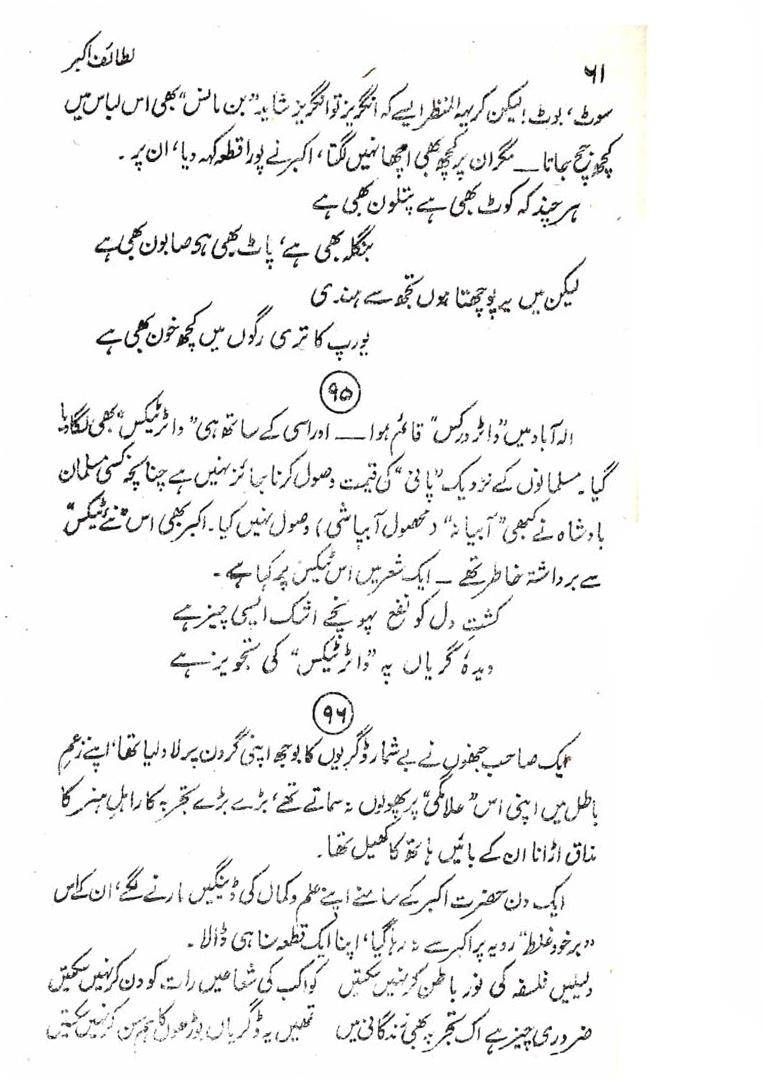 ۶۱
لطائف اکبر
سوٹ، بوٹ! لیکن کریہہ المنظر ایسے کہ انگریز تو انگریز شاید "بن مانس" بھی اس لباس میں
کچھ جچ جاتا ــ مگر ان پر کچھ بھی اچھا نہیں لگتا، اکبر نے پورا قطعہ کہہ دیا، ان پر ۔
ہر چند کہ کوٹ بھی ہے پتلون بھی ہے
بنگلہ بھی ہے، پاٹ بھی ہی صابون بھی ہے
لیکن میں یہ پوچھتا ہوں تجھ سے ہندی
یورپ کا تری رگوں میں کچھ خون بھی ہے
۹۵
الہ آباد میں "واٹر ورکس" قائم ہوا ــ اور اسی کے ساتھ ہی "واٹر ٹیکس" بھی لگا دیا
گیا۔ مسلمانوں کے نزدیک "پانی" کی قیمت وصول کرنا جائز نہیں ہے چنانچہ کسی مسلمان
بادشاہ نے کبھی "آبیانہ" (محصول آبپاشی) وصول نہیں کیا۔ اکبر بھی اس "نئے ٹیکس"
سے برداشتہ خاطر تھے ــ ایک شعر میں اس ٹیکس پر کہا ہے۔
کشتِ دل کو نفع پہونچے اشک ایسی چیز ہے
دیدۂ گریاں پہ "واٹر ٹیکس" کی تجویز ہے
۹۶
ایک صاحب جنھوں نے بے شمار ڈگریوں کا بوجھ اپنی گردن پر لاد لیا تھا، اپنے زعم
باطل میں اپنی اس "علامگی" پر پھولوں نہ سماتے تھے، بڑے بڑے تجربہ کار اہلِ ہنر کا
مذاق اڑانا ان کے بائیں ہاتھ کا کھیل تھا۔
ایک دن حضرت اکبر کے سامنے اپنے علم و کمال کی ڈینگیں مارنے لگے، ان کے اس
"برخود غلط" رویہ پر اکبر سے نہ رہا گیا، اپنا ایک قطعہ سنا ہی ڈالا۔
دلیلیں فلسفہ کی نور باطن کر نہیں سکتیں کواکب کی شعاعیں رات کو دن کر نہیں سکتیں
ضروری چیز ہے اک تجربہ بھی زندگانی میں تمھیں یہ ڈگریاں بوڑھوں کا ہم سن کر نہیں سکتیں